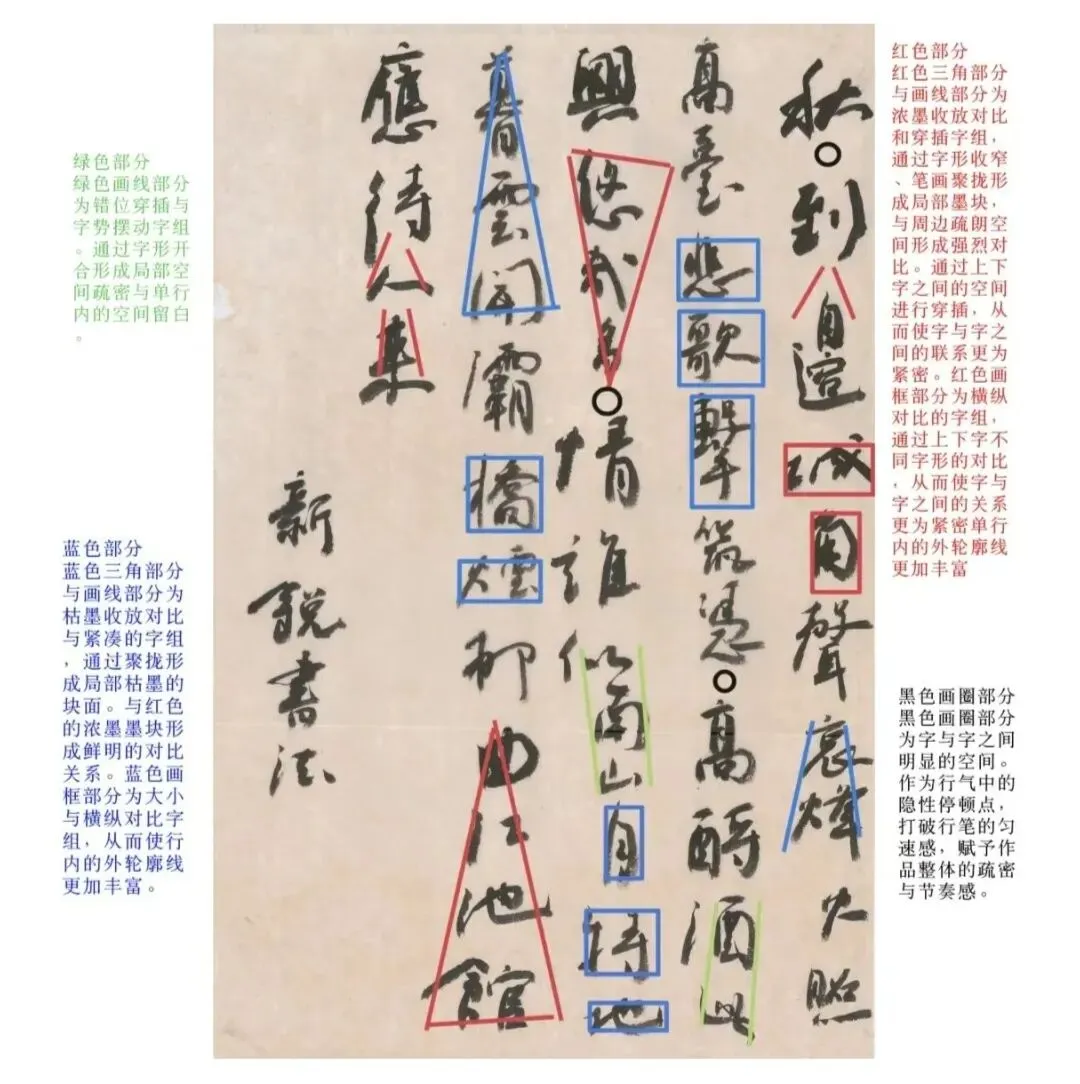 秋到邊城角聲哀烽火照
高臺悲歌擊筑憑高酹酒此
興悠哉多情誰似南山月特地
暮雲開灞橋煙柳曲江池館
應待人來
新銳書法
红色部分
红色三角部分
与画线部分为
浓墨收放对比
和穿插字组，
通过字形收窄
、笔画聚拢形
成局部墨块，
与周边疏朗空
间形成强烈对
比。通过上下
字之间的空间
进行穿插，从
而使字与字之
间的联系更为
紧密。红色画
框部分为横纵
对比的字组，
通过上下字不
同字形的对比
，从而使字与
字之间的关系
更为紧密单行
内的外轮廓线
更加丰富
黑色画圈部分
黑色画圈部分
为字与字之间
明显的空间。
作为行气中的
隐性停顿点，
打破行笔的匀
速感，赋予作
品整体的疏密
与节奏感。
绿色部分
绿色画线部分
为错位穿插与
字势摆动字组
。通过字形开
合形成局部空
间疏密与单行
内的空间留白
。
蓝色部分
蓝色三角部分
与画线部分为
枯墨收放对比
与紧凑的字组
，通过聚拢形
成局部枯墨的
块面。与红色
的浓墨墨块形
成鲜明的对比
关系。蓝色画
框部分为大小
与横纵对比字
组，从而使行
内的外轮廓线
更加丰富。